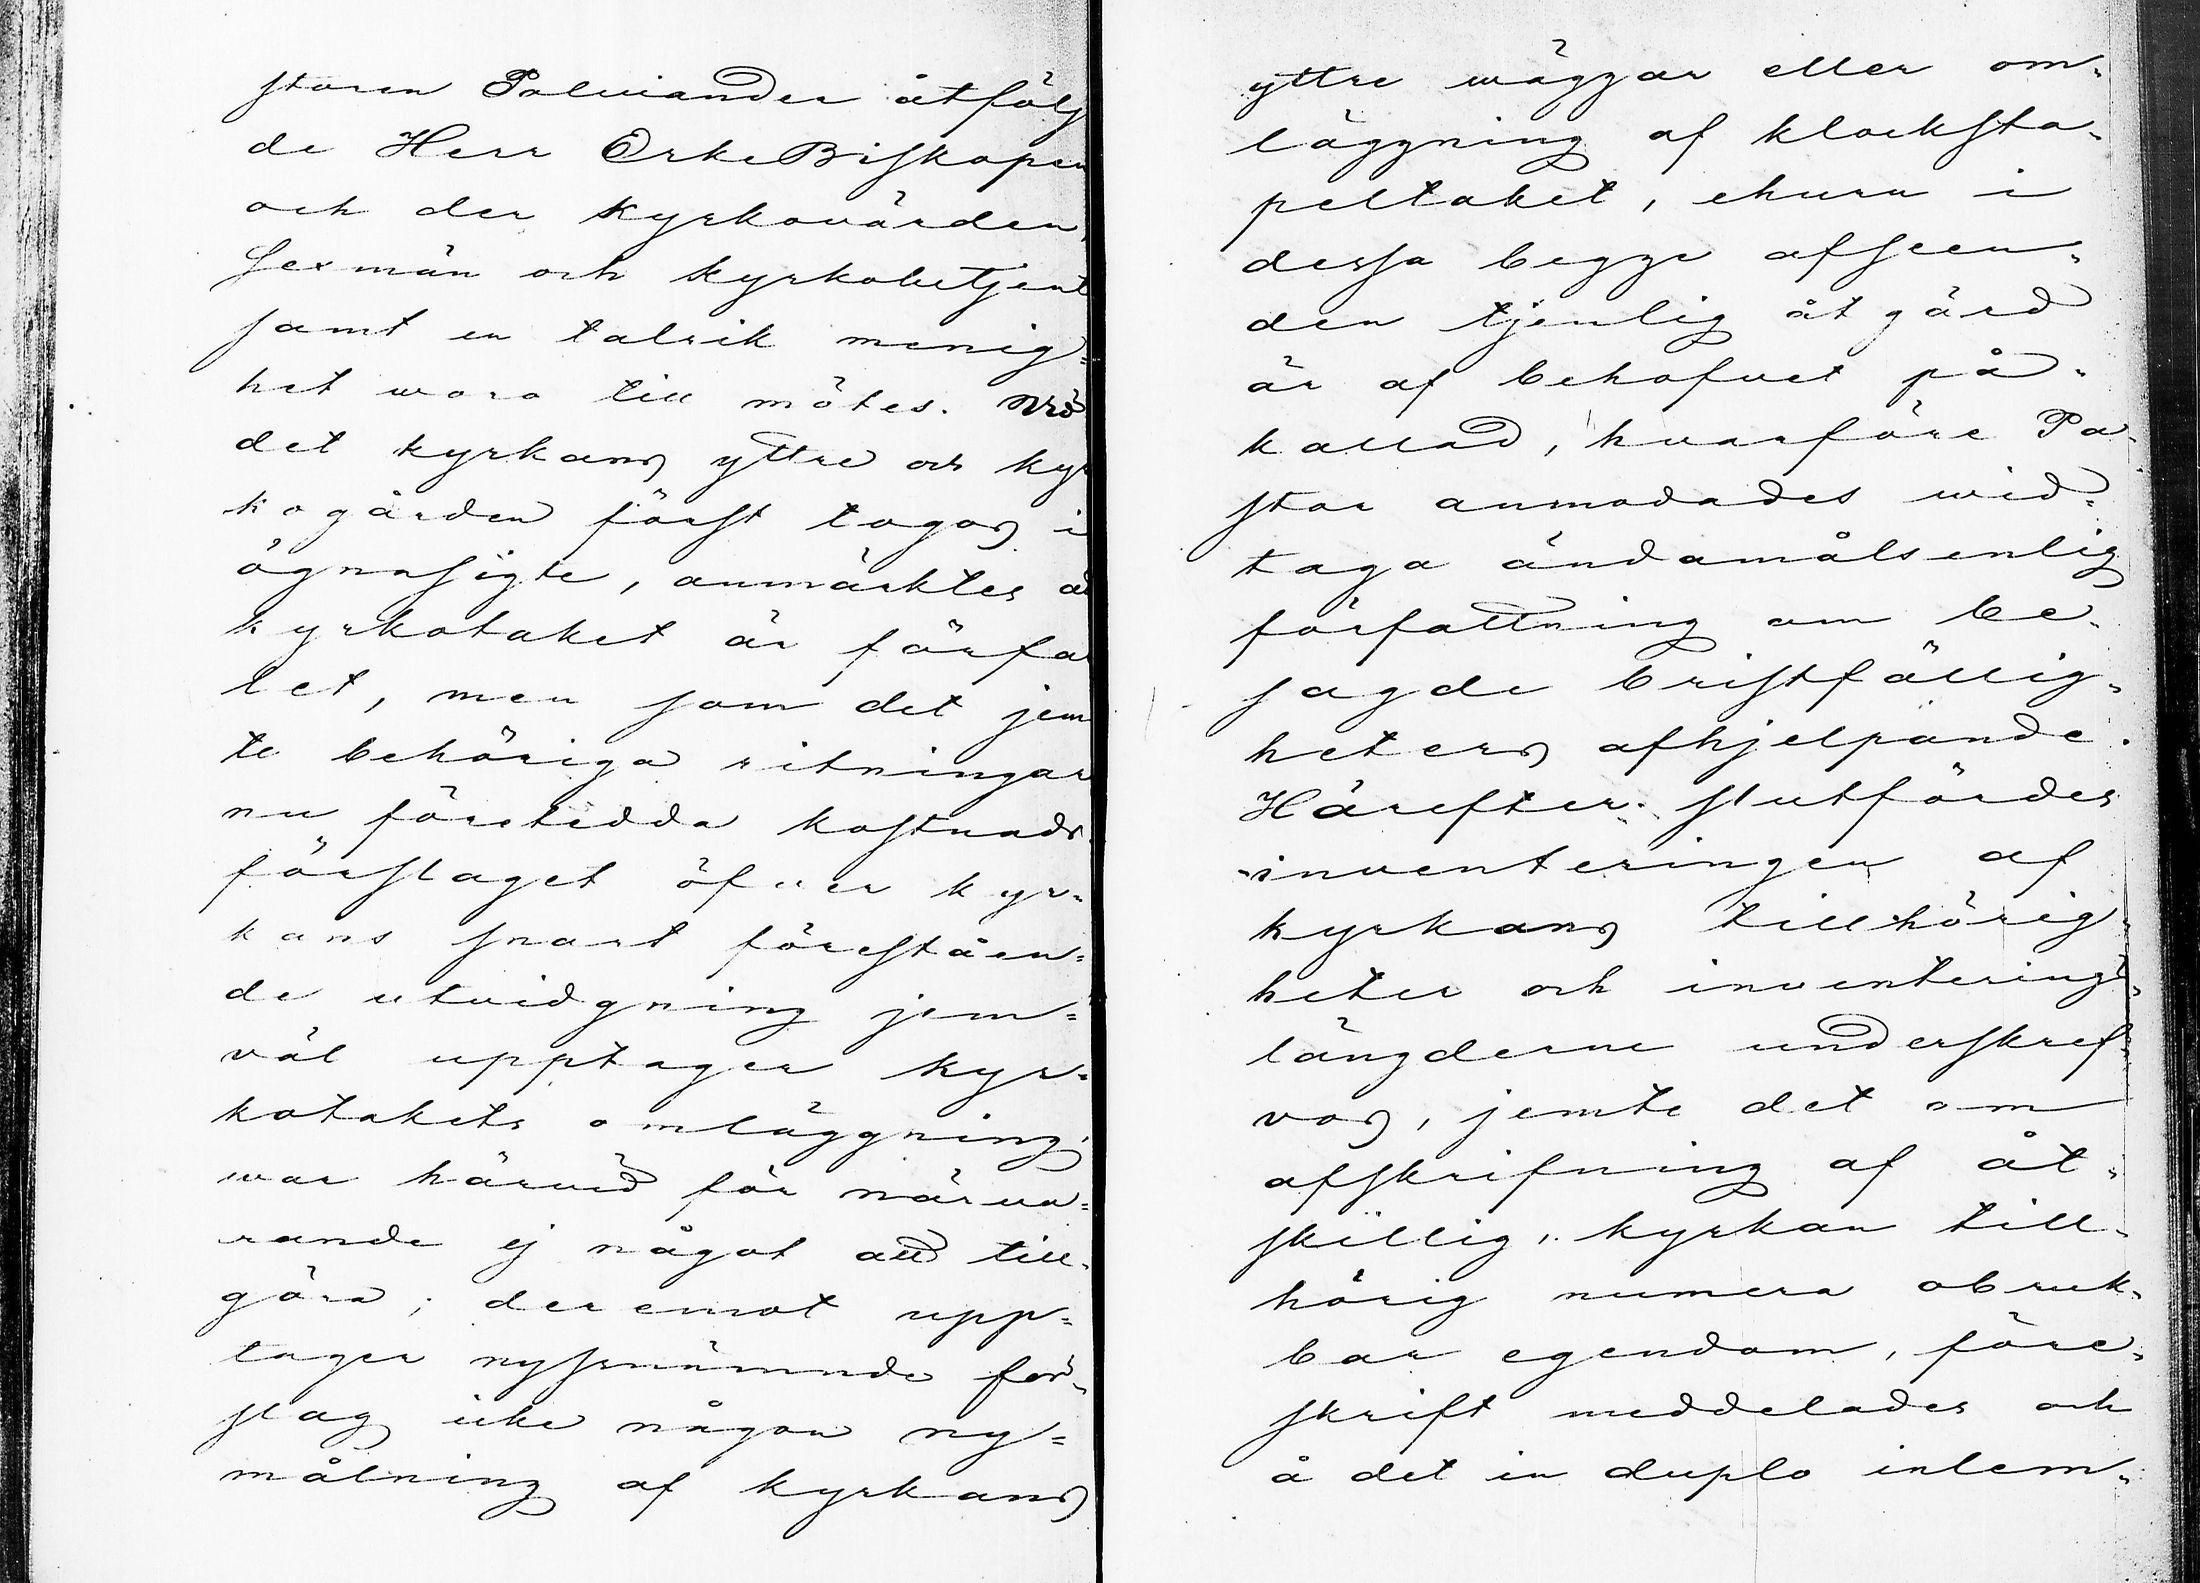 storen Polviander åtfölj
de Herr ErkeBiskopen
och der kyrkovärden,
Sexmän och kyrkobetjent
samt en talrik menig=
het woro till mötes. Vid
det kyrkans yttre och kyr
kogården först togos i
ögnasigte, anmärktes at
kyrkotaket är förfal
let, men som det jem
te behöriga ritningar
nu företedda kostnads
förslaget öfver kyr=
kans snart föreståen=
de utvidgning jem=
väl upptager kyr=
kotakets omläggning,
war härvid för närva=
rande ej något att till=
göra; deremot upp=
tager nyssnämnde för=
slag icke någon ny=
målning af kyrkans
yttre wäggar eller om=
läggning af klocksta=
peltaket, ehuru i
dessa begge afseen=
den tjenlig åtgärd
är af behofvet på=
kallad, hvarföre Pa=
stor anmodades wid=
taga ändamålsenlig
författning om be=
sagde bristfällig=
heters afhjelpande.
Härefter slutfördes
inventeringen af
kyrkans tillhörig=
heter och inventerings=
längderne underskref=
vos, jemte det om
afskrifning af åt=
skillig, kyrkan till=
hörig numera obruk=
bar egendom, före=
skrift meddelades och
å det in duplo inlem=